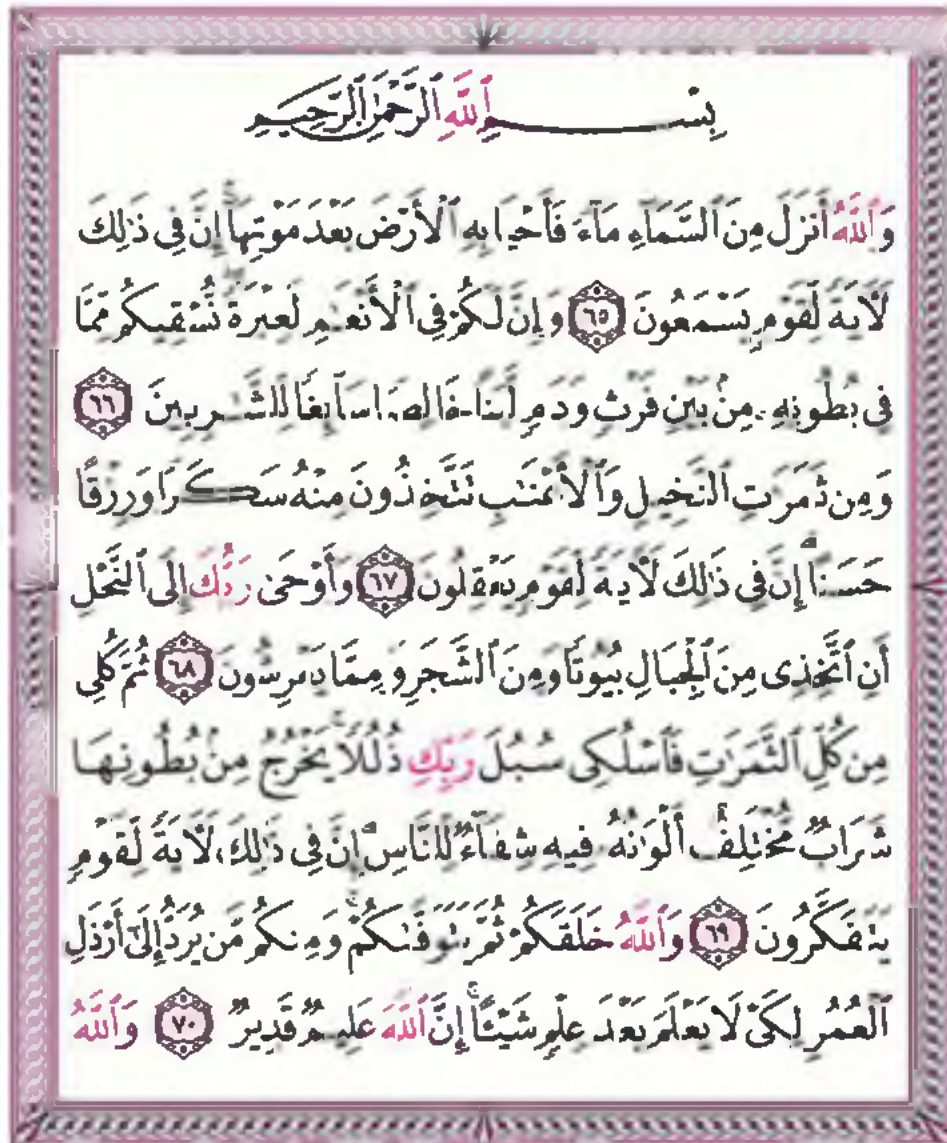 بِسْمِ ٱللَّهِ ٱلرَّحْمَٰنِ ٱلرَّحِيمِ
وَٱللَّهُ أَنزَلَ مِنَ ٱلسَّمَآءِ مَآءً فَأَحْيَا بِهِ ٱلْأَرْضَ بَعْدَ مَوْتِهَآ ۚ إِنَّ فِى ذَٰلِكَ
لَءَايَةً لِّقَوْمٍ يَسْمَعُونَ ٦٥ وَإِنَّ لَكُمْ فِى ٱلْأَنْعَٰمِ لَعِبْرَةً ۖ نُّسْقِيكُم مِّمَّا
فِى بُطُونِهِۦ مِنۢ بَيْنِ فَرْثٍ وَدَمٍ لَّبَنًا خَالِصًا سَآئِغًا لِّلشَّٰرِبِينَ ٦٦
وَمِن ثَمَرَٰتِ ٱلنَّخِيلِ وَٱلْأَعْنَٰبِ تَتَّخِذُونَ مِنْهُ سَكَرًا وَرِزْقًا
حَسَنًا ۗ إِنَّ فِى ذَٰلِكَ لَءَايَةً لِّقَوْمٍ يَعْقِلُونَ ٦٧ وَأَوْحَىٰ رَبُّكَ إِلَى ٱلنَّحْلِ
أَنِ ٱتَّخِذِى مِنَ ٱلْجِبَالِ بُيُوتًا وَمِنَ ٱلشَّجَرِ وَمِمَّا يَعْرِشُونَ ٦٨ ثُمَّ كُلِى
مِن كُلِّ ٱلثَّمَرَٰتِ فَٱسْلُكِى سُبُلَ رَبِّكِ ذُلُلًا ۚ يَخْرُجُ مِنۢ بُطُونِهَا
شَرَابٌ مُّخْتَلِفٌ أَلْوَٰنُهُۥ فِيهِ شِفَآءٌ لِّلنَّاسِ ۗ إِنَّ فِى ذَٰلِكَ لَءَايَةً لِّقَوْمٍ
يَتَفَكَّرُونَ ٦٩ وَٱللَّهُ خَلَقَكُمْ ثُمَّ يَتَوَفَّىٰكُمْ ۚ وَمِنكُم مَّن يُرَدُّ إِلَىٰٓ أَرْذَلِ
ٱلْعُمُرِ لِكَىْ لَا يَعْلَمَ بَعْدَ عِلْمٍ شَيْـًٔا ۚ إِنَّ ٱللَّهَ عَلِيمٌ قَدِيرٌ ٧٠ وَٱللَّهُ